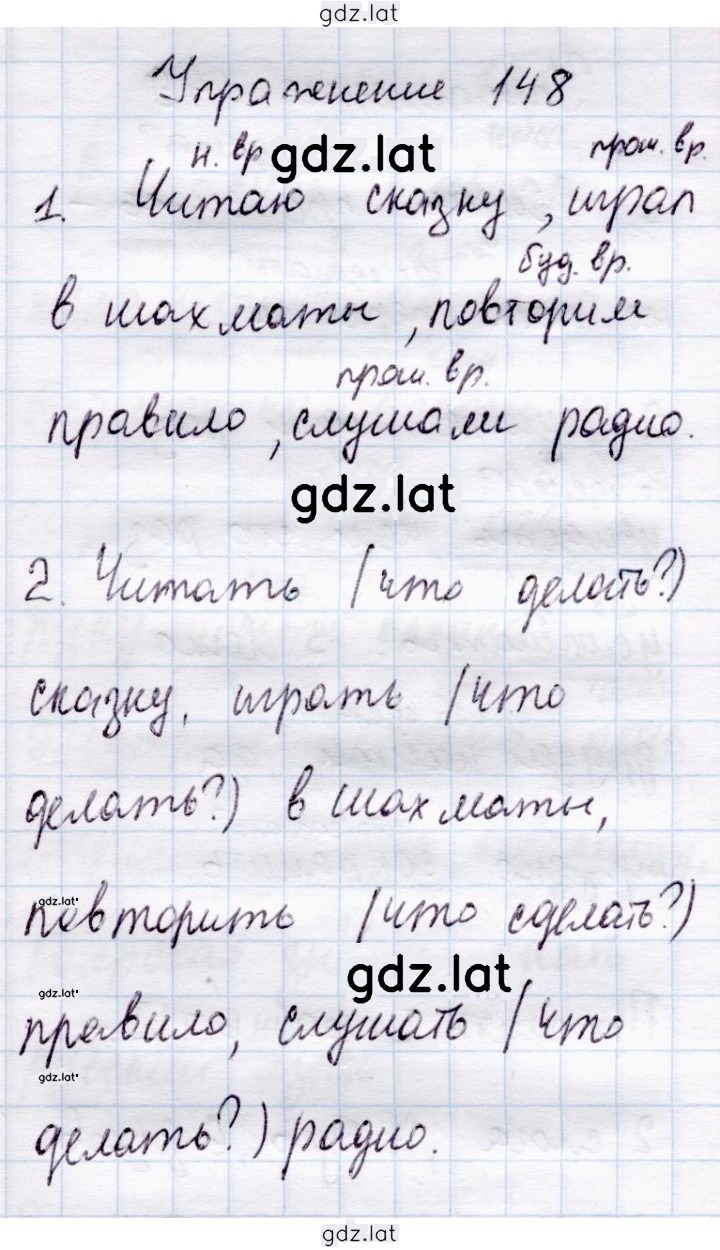 gdz.lat
Упражнение 148
н. вр gdz.lat прош. вр.
1. Читаю сказку, играл
буд. вр.
в шахматы, повторим
прош. вр.
правило, слушали радио.
gdz.lat
2. Читать (что делать?)
сказку, играть (что
делать?) в шахматы,
gdz.lat
повторить (что сделать?)
gdz.lat
gdz.lat
правило, слушать (что
gdz.lat
делать?) радио.
gdz.lat